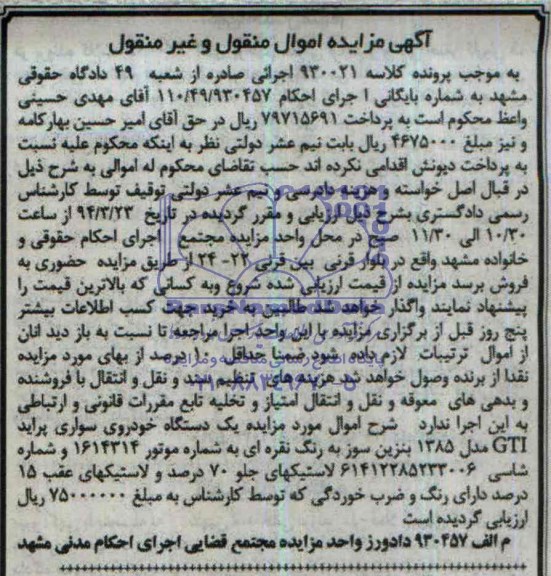 آگهی مزایده اموال منقول و غیر منقول
به موجب پرونده کلاسه ۹۳۰۰۲۱ اجرائی صادره از شعبه ۴۹ دادگاه حقوقی
مشهد به شماره بایگانی ا جرای احکام ۱۱۰/۴۹/۹۳۰۴۵۷ آقای مهدی حسینی
واعظ محکوم است به پرداخت ۷۹۷۱۵۶۹۱ ریال در حق آقای امیر حسین بهارکامه
و نیز مبلغ ۴۶۷۵۰۰۰ ریال بابت نیم عشر دولتی نظر به اینکه محکوم علیه نسبت
به پرداخت دیونش اقدامی نکرده اند حسب تقاضای محکوم له اموالی به شرح ذیل
در قبال اصل خواسته و هزینه دادرسی و نیم عشر دولتی توقیف توسط کارشناس
رسمی دادگستری بشرح ذیل ارزیابی و مقرر گردیده در تاریخ ۹۴/۳/۲۳ از ساعت
۱۰/۳۰ الی ۱۱/۳۰ صبح در محل واحد مزایده مجتمع اجرای احکام حقوقی و
خانواده مشهد واقع در بلوار قرنی بین قرنی ۲۲- ۲۴ از طریق مزایده حضوری به
فروش برسد مزایده از قیمت ارزیابی شده شروع وبه کسانی که بالاترین قیمت را
پیشنهاد نمایند واگذار خواهد شد طالبین به خرید جهت کسب اطلاعات بیشتر
پنج روز قبل از برگزاری مزایده با این واحد اجرا مراجعه تا نسبت به باز دید انان
از اموال ترتیبات لازم داده شود ضمنا حداقل ۱۰ درصد از بهای مورد مزایده
نقدا از برنده وصول خواهد شد هزینه های تنظیم سند و نقل و انتقال با فروشنده
و بدهی های معوقه و نقل و انتقال امتیاز و تخلیه تابع مقررات قانونی و ارتباطی
به این اجرا ندارد شرح اموال مورد مزایده یک دستگاه خودروی سواری پراید
GTI مدل ۱۳۸۵ بنزین سوز به رنگ نقره ای به شماره موتور ۱۶۱۴۳۱۴ و شماره
شاسی ۶۱۴۱۲۲۸۵۲۳۳۰۰۶ لاستیکهای جلو ۷۰ درصد و لاستیکهای عقب ۱۵
درصد دارای رنگ و ضرب خوردگی که توسط کارشناس به مبلغ ۷۵۰۰۰۰۰۰ ریال
ارزیابی گردیده است
م الف ۹۳۰۴۵۷ دادورز واحد مزایده مجتمع قضایی اجرای احکام مدنی مشهد